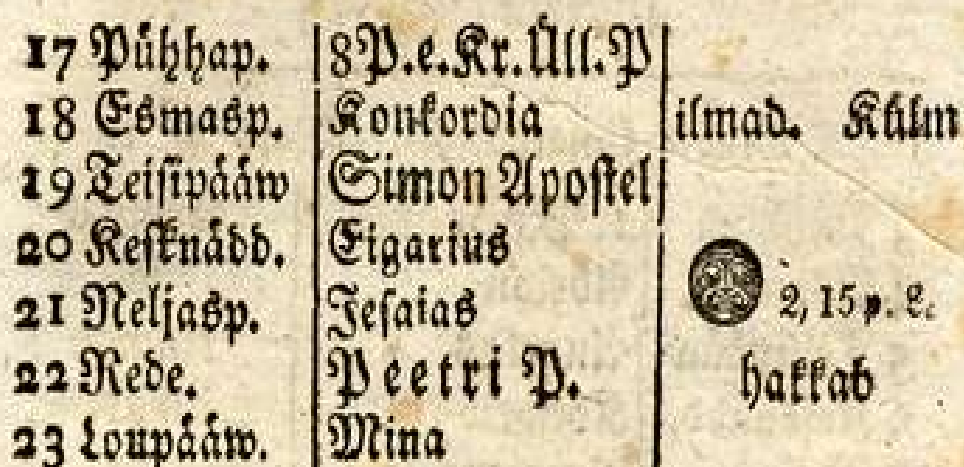 17 Pühhap. 8P.e.Kr.Üll.P
18 Esmasp. Konkordia ilmad. Külm
19 Teisipääw Simon Apostel
20 Kesknädd. Eigarius
21 Neljasp. Jesaias 2, 15 p. L.
22 Rede. Peetri P. hakkab
23 Loupääw. Mina